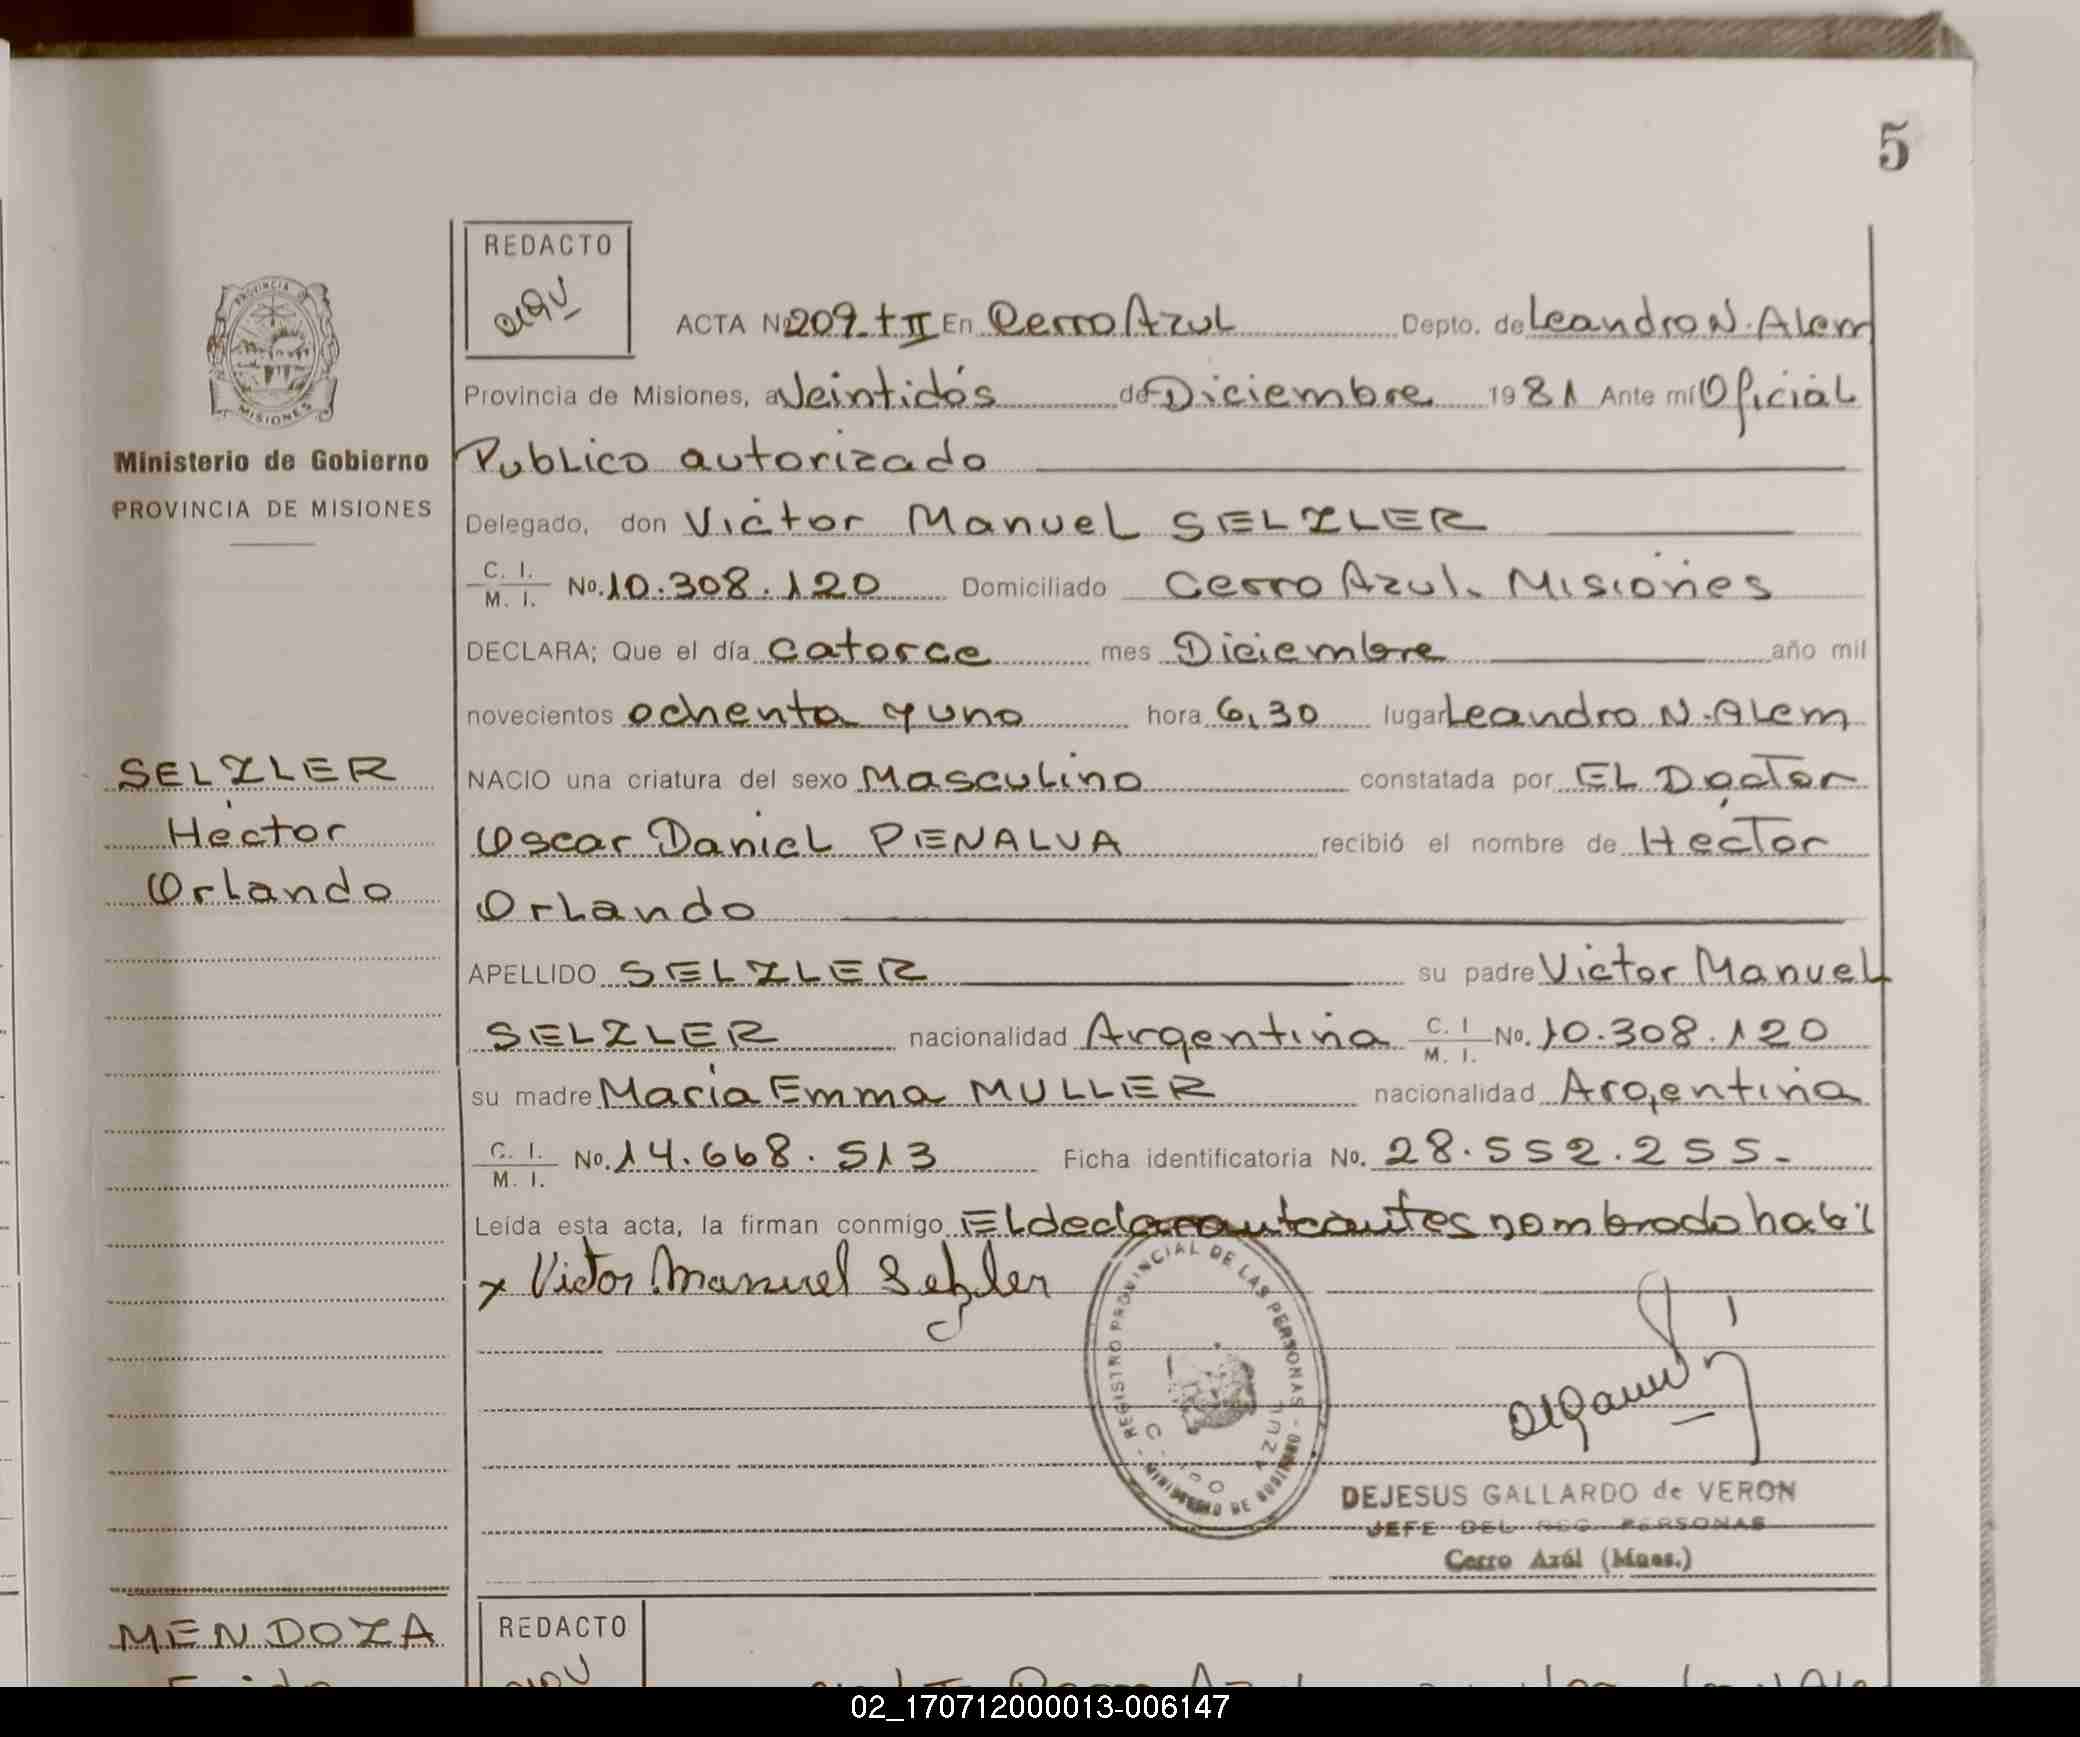 5
REDACTO
PROVINCIA DE
MISIONES
ACTA No 209 - t II En Cerro Azul Depto. de Leandro N. Alem
Provincia de Misiones, a Veintidós de Diciembre 1981 Ante mí Oficial
Ministerio de Gobierno
Publico autorizado
PROVINCIA DE MISIONES
Delegado, don Victor Manuel SELZLER
C. I.
M. I. No. 10.308.120 Domiciliado Cerro Azul. Misiones
DECLARA; Que el día catorce mes Diciembre año mil
novecientos ochenta y uno hora 6,30 lugar Leandro N. Alem
SELZLER
Héctor
Orlando
NACIO una criatura del sexo Masculino constatada por EL Doctor
Oscar Daniel PENALVA recibió el nombre de Hector
Orlando
APELLIDO SELZLER su padre Victor Manuel
SELZLER nacionalidad Argentina C. I. M. I. No. 10.308.120
su madre Maria Emma MULLER nacionalidad Argentina
C. I.
M. I. No. 14.668.513 Ficha identificatoria No. 28.552.255.-
Leída esta acta, la firman conmigo El nombrado habil
x Victor Manuel Selzler
REGISTRO PROVINCIAL DE LAS PERSONAS
MINISTERIO DE GOBIERNO
DEJESUS GALLARDO de VERON
JEFE DEL REG. PERSONAS
Cerro Azúl (Mnes.)
MENDOZA
REDACTO
02_170712000013-006147